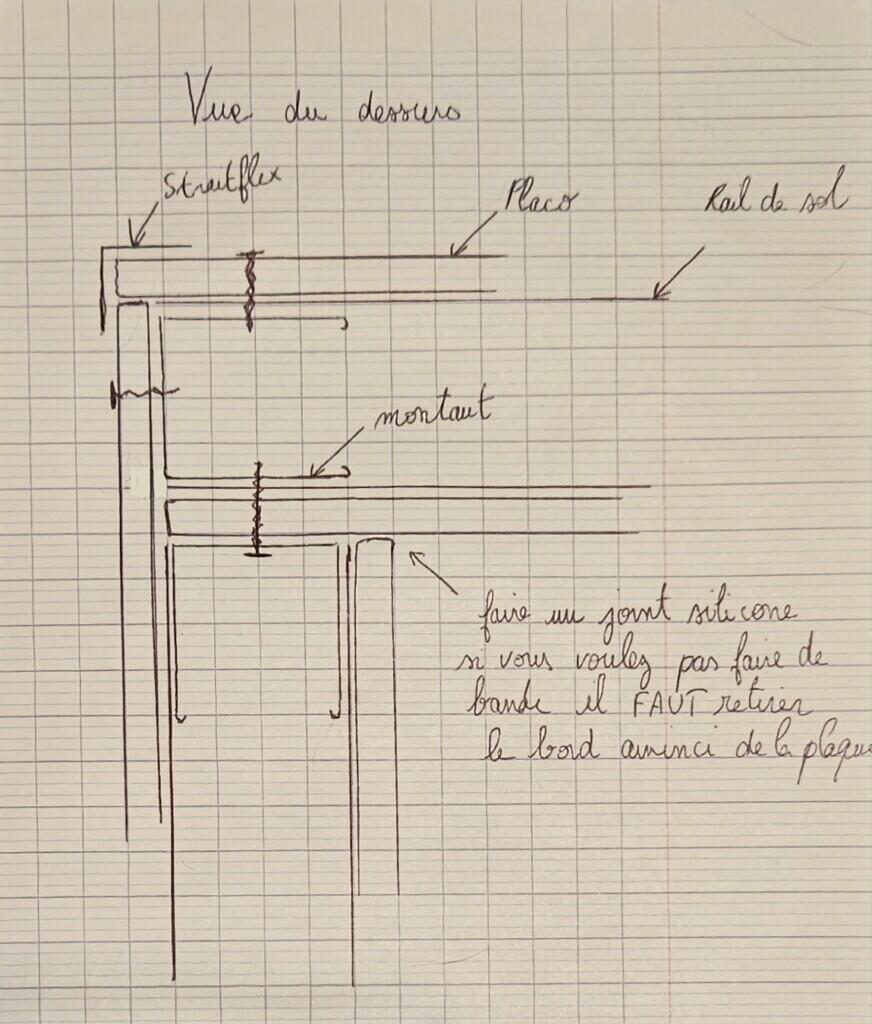 Vue du dessus
Straitflex
Placo
Rail de sol
montant
faire un joint silicone
si vous voulez pas faire de
bande il FAUT retirer
le bord aminci de la plaque